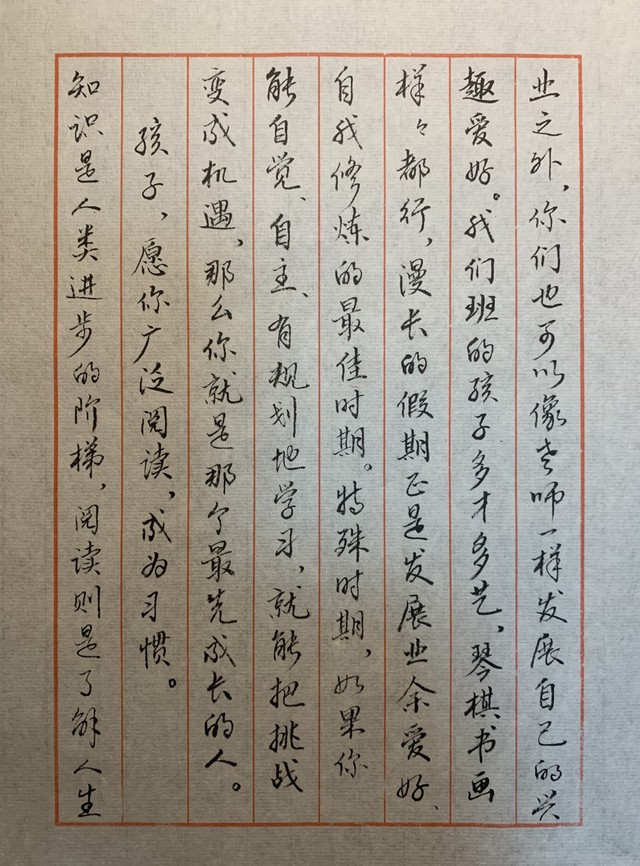 业之外，你们也可以像老师一样发展自己的兴
趣爱好。我们班的孩子多才多艺，琴棋书画
样々都行，漫长的假期正是发展业余爱好、
自我修炼的最佳时期。特殊时期，如果你
能自觉、自主、有规划地学习，就能把挑战
变成机遇，那么你就是那个最先成长的人。
孩子，愿你广泛阅读，成为习惯。
知识是人类进步的阶梯，阅读则是了解人生